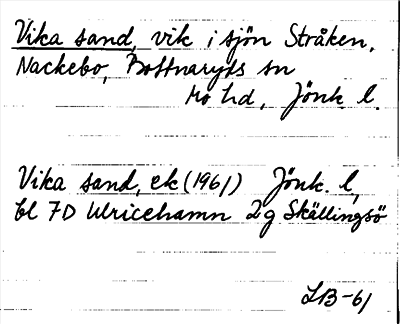 Vika sand, vik i sjön Stråken,
Nackebo, Bottnaryds sn
Mo hd, Jönk. l.
Vika sand, ek (1961) Jönk. l,
bl 7D Ulricehamn 2g Skällingsö
LB-61